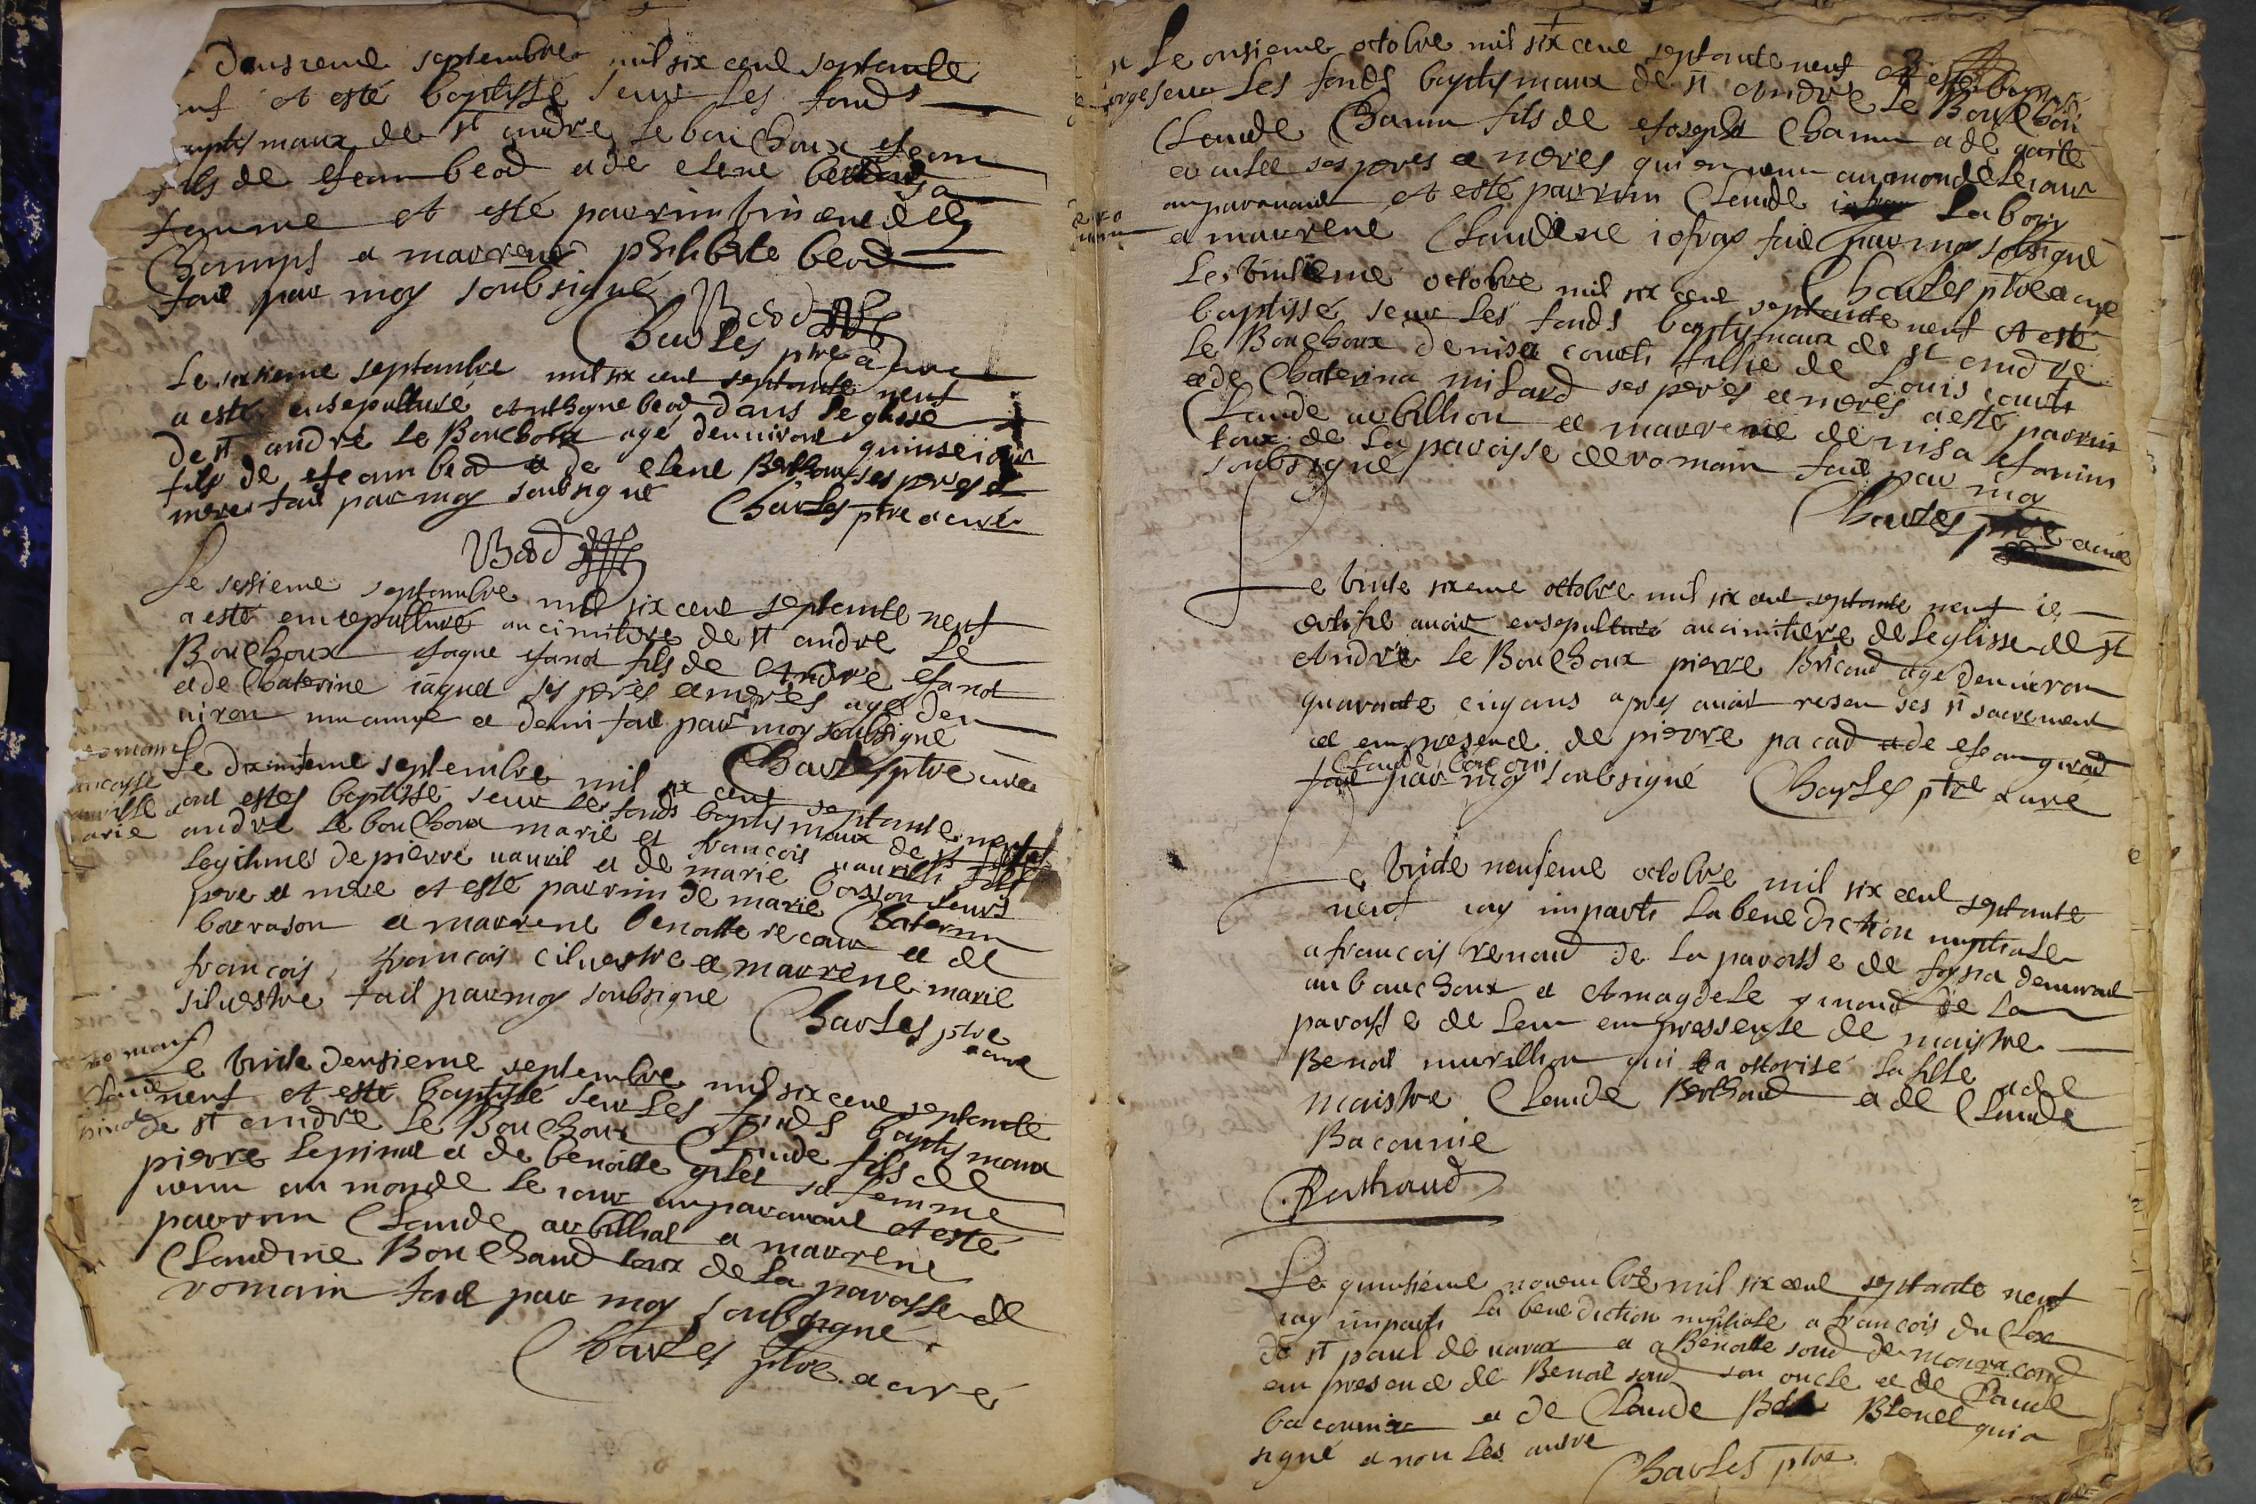 deusieme septembre mil six cent septante
neuf at esté baptissé seur les fonds
baptismaux de st andre le bouchoux Jean
fils de Jean beod et de elene
famme at esté parrin vincent des
Champs et marrene philiberte beod
fait par moy soubsigné
Beod
Charles ptre et curé
Le sixsieme septambre mil six cent septante neuf
a esté ensepulturé anthoyne beod dans leglisse
de st andré le Bouchoux agé denviront quinse iour
fils de Jean beod et de elene Berthoux ses peres et
mere fait par moy soubsigné
Charles ptre et curé
Beod
Le sessieme septambre mil six cent septante neuf
a esté ensepulturé au cimitiere de st andre le
Bouchoux Jaque Janot fils de Andre Janot
et de Chaterine iaquet ses peres et meres agé den
viron un anne et demi fait par moy soubsigné
Charles ptre curé
Le dixuitieme septembre mil six cent septante neuf
ont estes baptissé seur les fonds baptismaux de st
andre le bouchoux marie et francois
legitimes de pierre et de marie seurs
pere et mere et esté parrin de marie Chaterin
borrason et marrene benoitte recour et de
francois, francois cilvestre et marrene marie
silvestre fait par moy soubsigné
Charles ptre
et curé
romans
Le vinte deusieme septembre mil six cent septante
neuf at esté baptissé seur les fonds baptismaux
de st andre le Bouchoux Claude fils de
pierre lepinat et de benoitte gilet sa femme
venu au monde le iour auparavant at esté
parrin Claude aubilliat et marrene
Claudine Bouchaud toux de la paroisse de
romain fait par moy soubsigné
Charles ptre et curé
Le onsieme octobre mil six cent septante neuf at esté baptisé
seur les fonds baptismaux de st Andre le Bouchou
Claude Chanu fils de Joseph Chanu et de
ses peres et meres qui en venu au monde le iour
auparavant at esté parrin Claude labory
et marrene Claudine iofray fait par moy sobsigné
Charles ptre et curé
Le vintieme octobre mil six cent septante neuf at esté
baptissé seur les fonds baptismaux de st andre
le Bouchoux denisa courti fillie de Louis courti
et de Chaterina milard ses peres et meres a esté parrin
Claude aubillion et marrene denisa Janin
toux de la paroisse de romain fait par moy
soubsigné
Charles ptre et curé
Le vinte sixeme octobre mil six cent septante neuf ie
certifie avoir ensepulturé au cimitiere de leglisse de st
Andre le Bouchoux pierre Bricaud agé denviron
quarante cinq ans apres avoir reseu ses st sacrement
et en presence de pierre pacad et de Jean girad
Claude baconi
fait par moy soubsigné Charles ptre et curé
Le vinte neufieme octobre mil six cent septante
neuf iay imparti la benediction nuptiale
a francois renaud de la paroisse de foysia demeurant
au bouchoux et Amagdele giraud de la
paroisse de Lent en pressense de maistre
Benoit murillion qui a ottorisé la fille et de
maistre Claude Berthaud et de Claude
Baconnie
Berthaud
Le quinsieme novembre mil six cent septante neuf
iay imparti la benediction nuptiale a francois du Clox
de st paul de varax et a Benoitte soud de
en presence de Benoit soud son oncle et de Claude
baconnie et de Claude Blonel qui a
signé et non les autre
Charles ptre